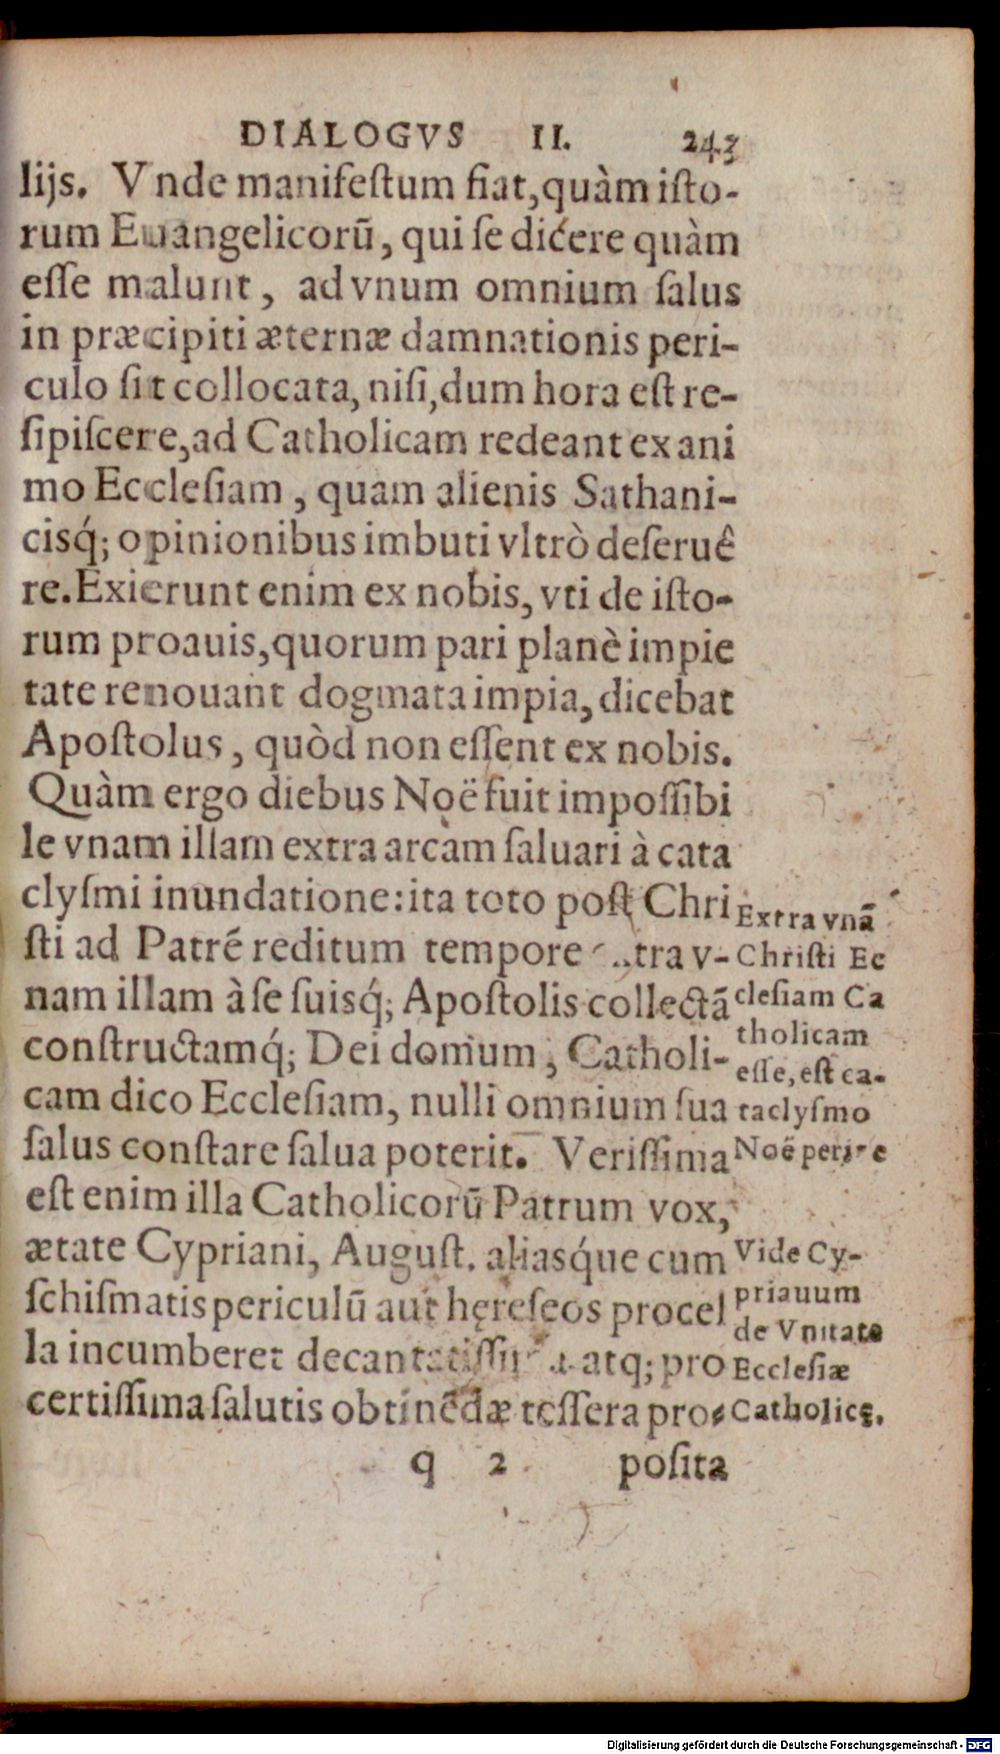 DIALOGVS II. 243
lijs. Vnde manifeſtum fiat, quàm iſto-
rum Euangelicorū, qui ſe dicere quàm
eſſe malunt, ad vnum omnium ſalus
in præcipiti æternæ damnationis peri-
culo ſit collocata, niſi, dum hora eſt re-
ſipiſcere, ad Catholicam redeant ex ani
mo Eccleſiam, quam alienis Sathani-
cisq́; opinionibus imbuti vltrò deſeruê
re. Exierunt enim ex nobis, vti de iſto-
rum proauis, quorum pari planè impie
tate renouant dogmata impia, dicebat
Apoſtolus, quòd non eſſent ex nobis.
Quàm ergo diebus Noë fuit impoſſibi
le vnam illam extra arcam ſaluari à cata
clyſmi inundatione: ita toto poſt Chri
ſti ad Patrē reditum tempore extra v-
nam illam à ſe ſuisq́; Apoſtolis collectā
conſtructamq́; Dei domum, Catholi-
cam dico Eccleſiam, nulli omnium ſua
ſalus conſtare ſalua poterit. Veriſſima
eſt enim illa Catholicorū Patrum vox,
ætate Cypriani, Auguſt. aliasq́ue cum
ſchiſmatis periculū aut hęreſeos procel
la incumberet decantatiſſima atq; pro
certiſſima ſalutis obtinēdæ teſſera pro-
Extra vnā
Chriſti Ec
cleſiam Ca
tholicam
eſſe, eſt ca-
taclyſmo
Noë perire
Vide Cy-
prianum
de Vnitate
Eccleſiæ
Catholicę.
q 2 poſita
Digitalisierung gefördert durch die Deutsche Forschungsgemeinschaft - DFG